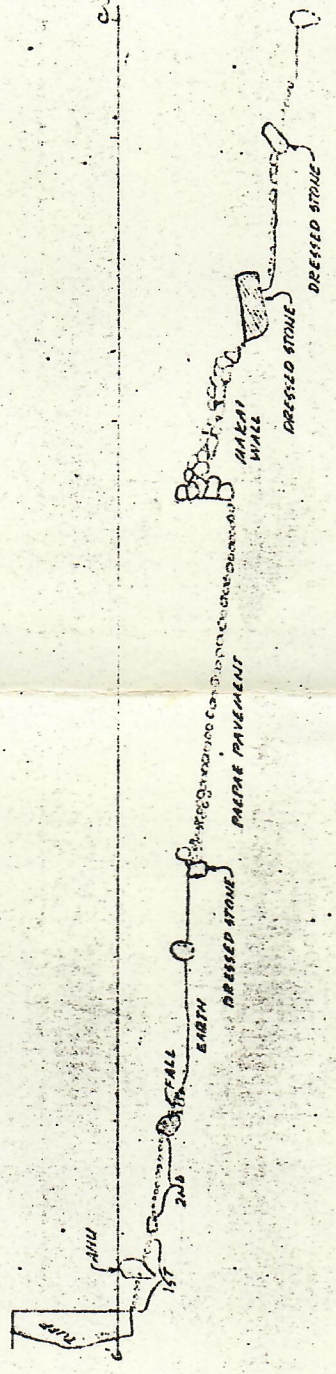 C
TUFF
AHU
1ST
2ND
FALL
EARTH
DRESSED STONE
PAEPAE PAVEMENT
MAKAI
WALL
DRESSED STONE
DRESSED STONE
C